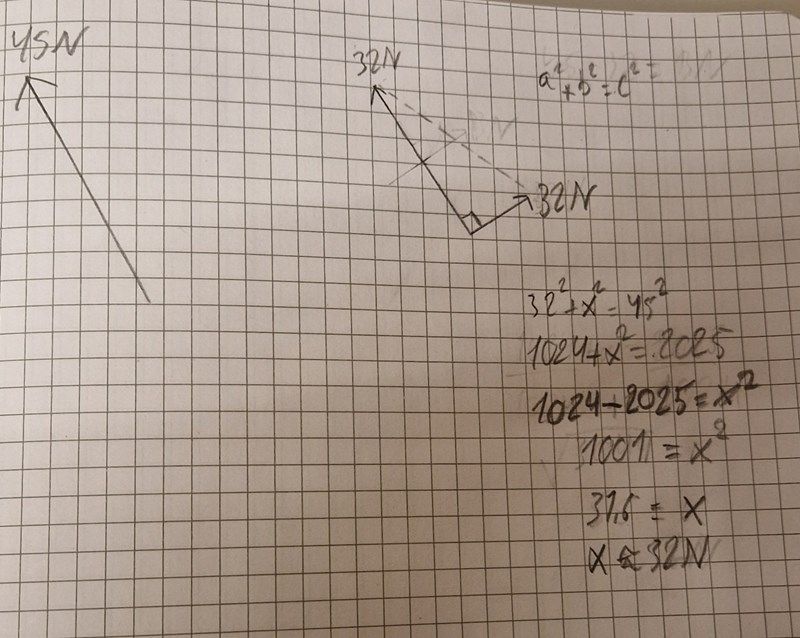 45N
32N
a² + b² = c² =
32N
32² + x² = 45²
1024 + x² = 2025
1024 - 2025 = x²
1001 = x²
31,6 = x
x ≈ 32N